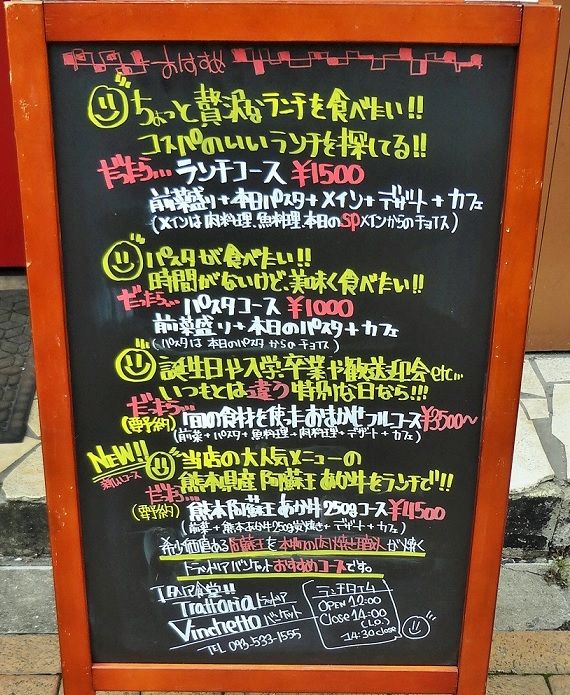 おすすめ
ちょっと贅沢なランチを食べたい!!
コスパのいいランチを探してる!!
だったら… ランチコース ¥1500
前菜盛り+本日パスタ+メイン+デザート+カフェ
(メインは肉料理、魚料理、本日のSPメインからのチョイス)
パスタが食べたい!!
時間がないけど、美味く食べたい!!
だったら… パスタコース ¥1000
前菜盛り+本日のパスタ+カフェ
(パスタは本日のパスタからのチョイス)
誕生日や入学、卒業や歓送迎会etc…
いつもとは違う特別な日なら!!!
だったら…
(要予約) 旬の食材を使ったおまかせフルコース¥3500〜
(前菜+パスタ+魚料理+肉料理+デザート+カフェ)
NEW!! 当店の大人気メニューの
新しいコース 熊本県産 阿蘇王あか牛をランチで!!
だったら…
(要予約) 熊本阿蘇王あか牛250gコース ¥4500
(前菜+熊本あか牛250g炭焼き+デザート+カフェ)
希少価値ある阿蘇王を本場の肉焼き職人が焼く
トラットリアバンケットおすすめコースです。
イタリア食堂!!
Trattoria トラットリア
Vinchetto バンケット
TEL 093-533-1555
ランチタイム
OPEN 12:00
Close 14:00
(L.O.)
14:30 close